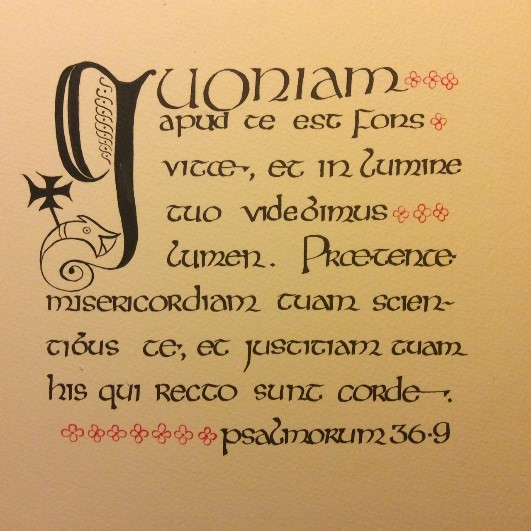 Quoniam
apud te est fons
vitæ, et in lumine
tuo videbimus
lumen. Prætente
misericordiam tuam scien-
tibus te, et justitiam tuam
his qui recto sunt corde.
psalmorum 36·9